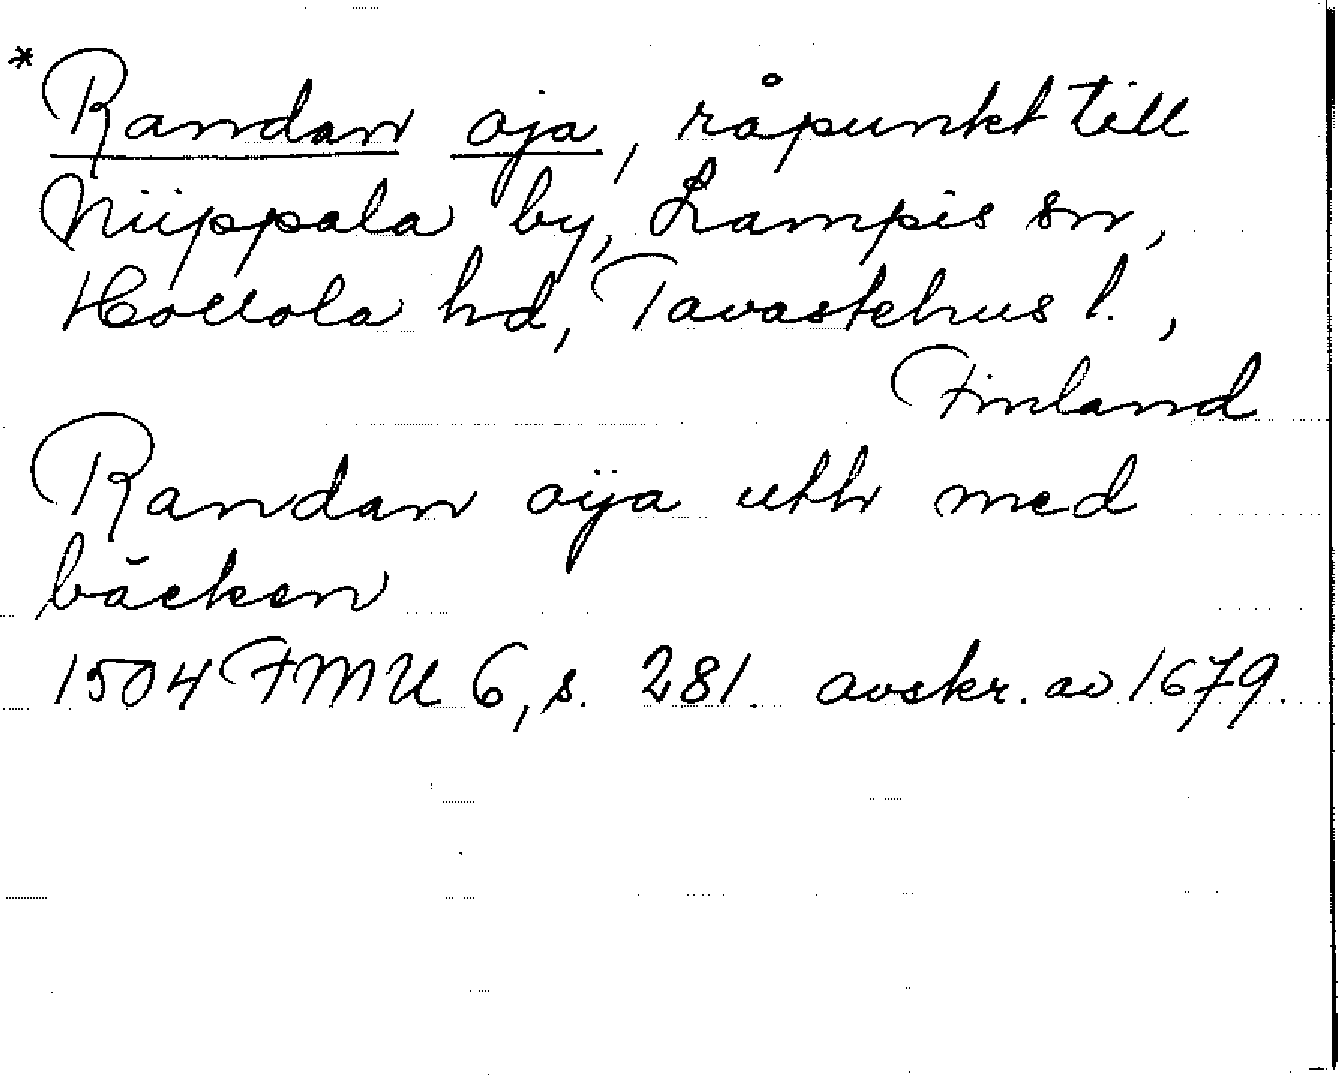 * Randan oja, råpunkt till
Niippala by, Lampis sn,
Hollola hd, Tavastehus l.,
Finland
Randan oÿa uthr med
bäcken
1504 FMU 6, s. 281. avskr. av 1679.